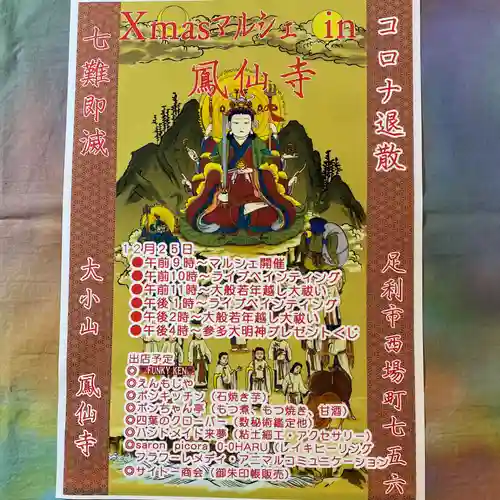 Xmasマルシェ in
鳳仙寺
コロナ退散
足利市西場町七五六
七難即滅
大小山 鳳仙寺
12月25日
●午前9時～マルシェ開催
●午前10時～ライブペインティング
●午前11時～大般若年越し大祓い
●午後1時～ライブペインティング
●午後2時～大般若年越し大祓い
●午後4時～参多大明神プレゼントくじ
出店予定
◎FUNKY KEN
◎えんもじや
◎ポンキッチン（石焼き芋）
◎ポンちゃん亭（もつ煮、もつ焼き、甘酒）
◎四葉のクローバー（数秘術鑑定他）
◎ハンドメイド来夢（粘土細工・アクセサリー）
◎saron picora O-OHARU（レイキヒーリング
フラワーレメディ・アニマルコミュニケーション
◎サイトー商会（御朱印帳販売）